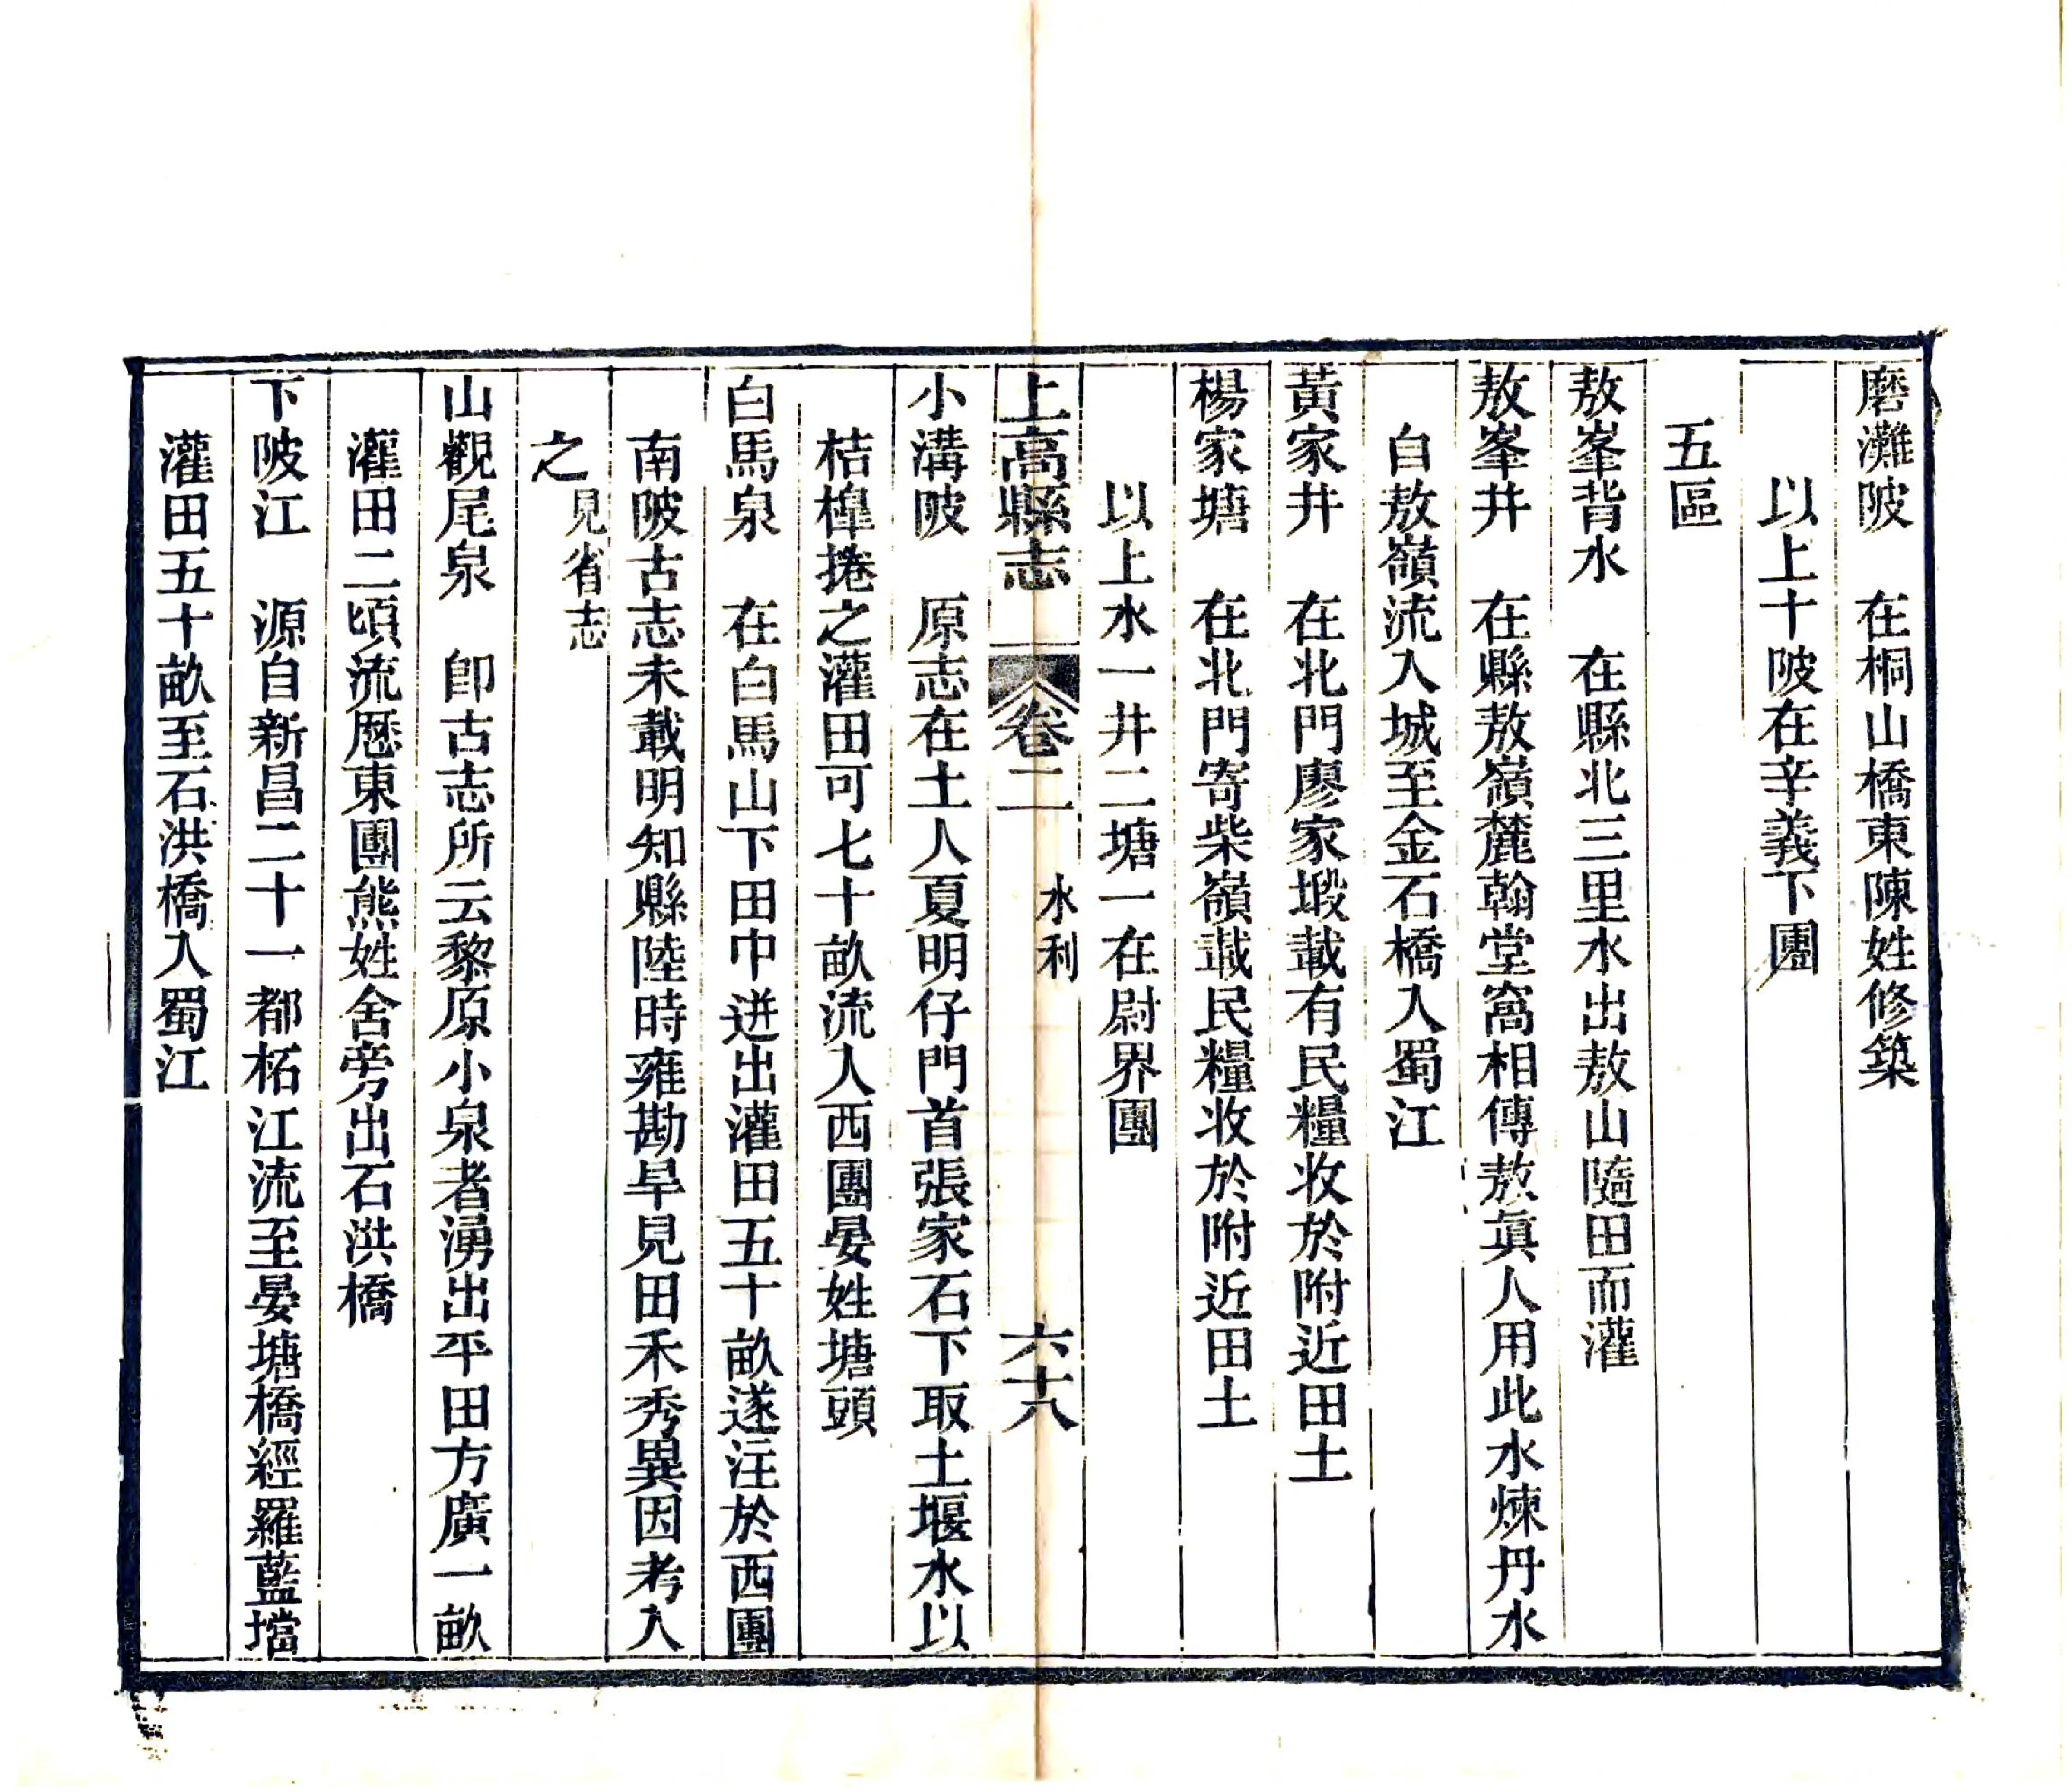 磨灘陂　在桐山橋東陳姓修築
以上十陂在辛義下團
五區
敖峯背水　在縣北三里水出敖山隨田而灌
敖峯井　在縣敖嶺麓翰堂窩相傳敖眞人用此水煉丹水
自敖嶺流入城至金石橋入蜀江
黃家井　在北門廖家塅載有民糧收於附近田土
楊家塘　在北門寄柴嶺載民糧收於附近田土
以上水一井二塘一在尉界團
上高縣志　卷二　水利　六十八
小溝陂　原志在土人夏明仔門首張家石下取土堰水以
桔槹捲之灌田可七十畝流入西團晏姓塘頭
白馬泉　在白馬山下田中迸出灌田五十畝遂注於西團
南陂古志未載明知縣陸時雍勘旱見田禾秀異因考入
之見省志
山觀尾泉　卽古志所云黎原小泉者湧出平田方廣一畝
灌田二頃流歷東團熊姓舍旁出石洪橋
下陂江　源自新昌二十一都柘江流至晏塘橋經羅藍壋
灌田五十畝至石洪橋入蜀江